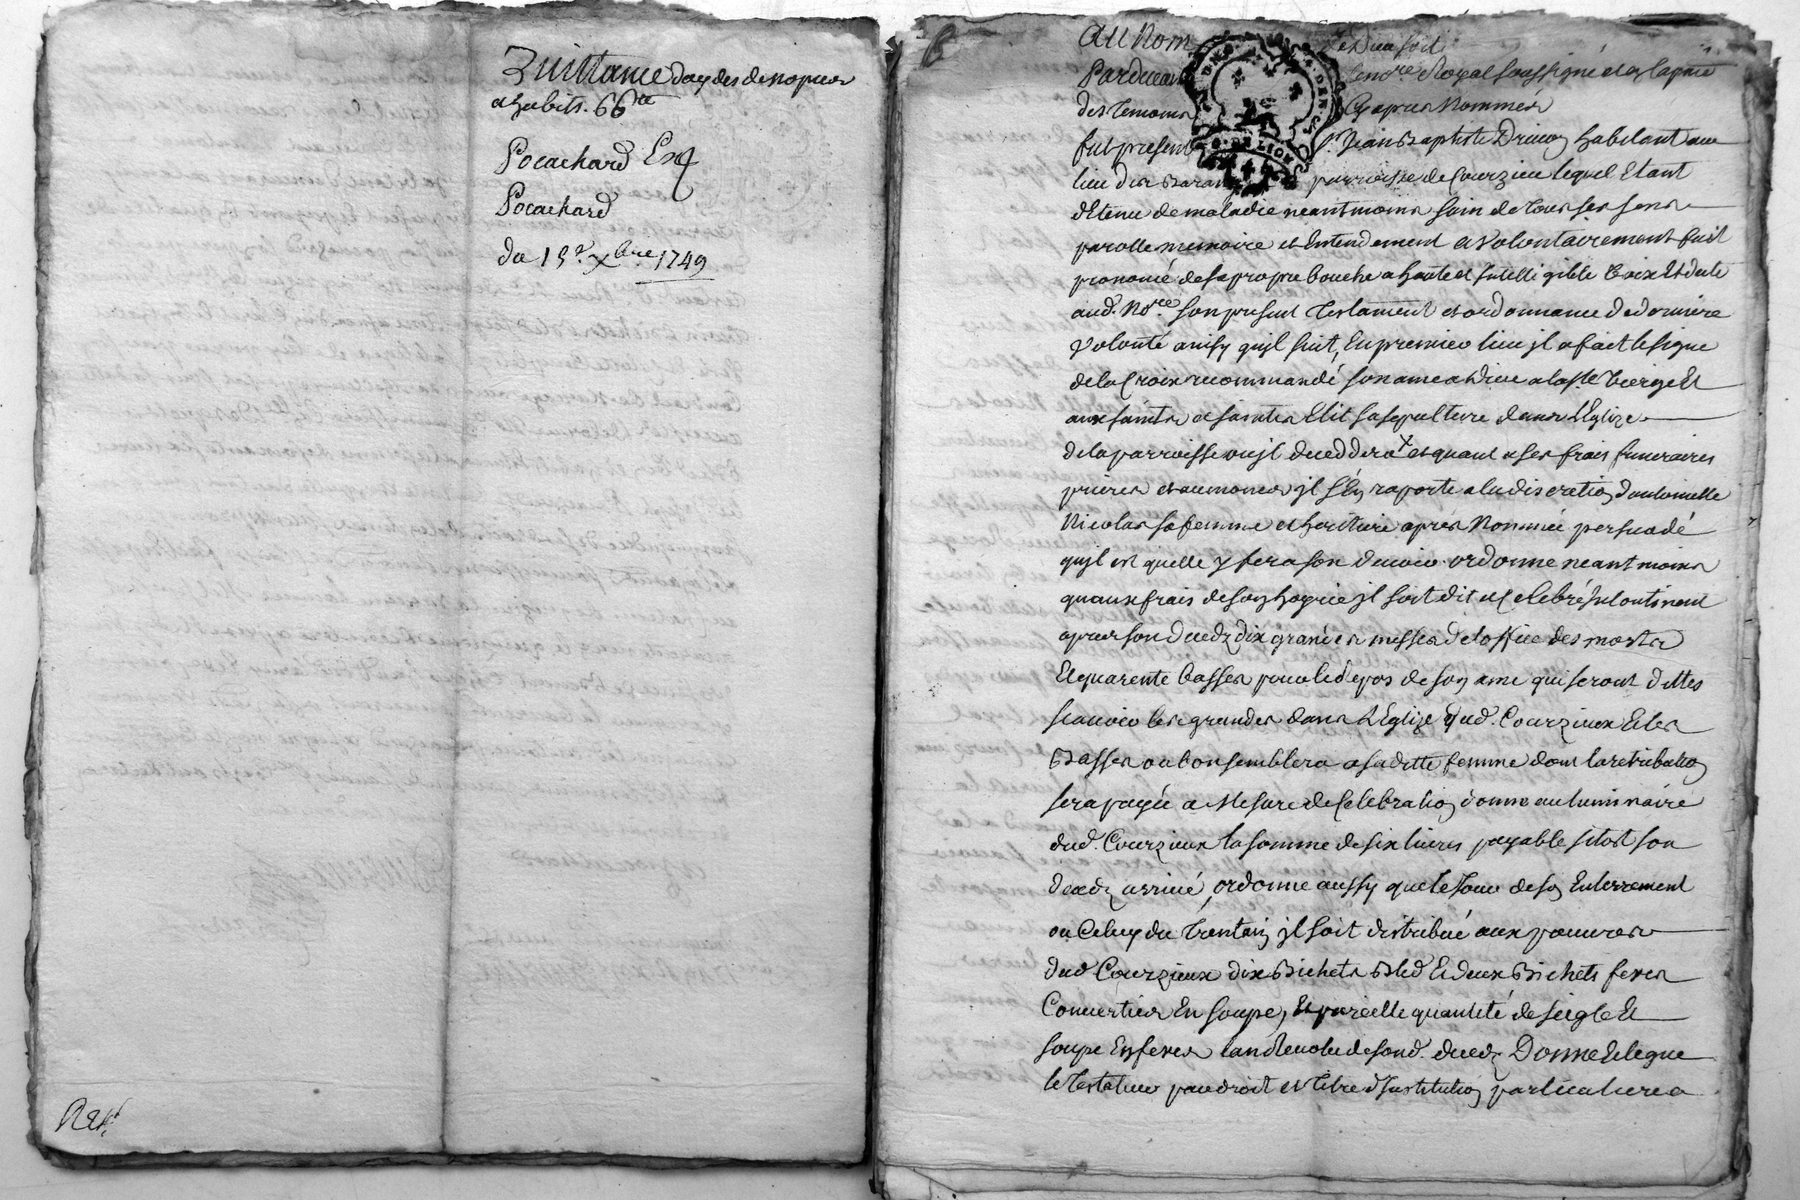 Quittance d'aydes de nopces
et habits. 66tt
Pocachard Exq
Pocachard
du 15e Xbre 1749
Ret
6
Au Nom de Dieu soit
Pardevant Royal soussigné et en la pnce
des temoins Cy apres Nommés
fut present Sr. Jean Baptiste Drivon habitant au
lieu des parroisse de Courzieu lequel Etant
detenu de maladie neantmoins sain de tous ses sens
parolle memoire et Entendement a volontairement fait
prononcé de sa propre bouche a haute et Intelligible voix Et dicté
aud. Nore son present Testament et ordonnance de derniere
Volonté ainsy qu'jl suit, En premier lieu jl a fait le signe
de la Croix recommandé son ame a Dieu a la ste Vierge Et
aux saints et saintes Elit sa sepulture dans L'Eglize
de la parroisse ou jl deceddera et quant a ses frais funeraires
prieres et aumones jl s'en raporte a la discretion d'antoinette
Nicolas sa femme et heritiere apres Nommée persuadé
qu'jl est quelle y fera son devoir ordonne neantmoins
qu'aux frais de son hoyrie jl soit dit et celebré Incontinent
apres son decedz dix grandes messes de loffice des morts
Et quarente basses pour le repos de son ame qui seront dittes
scavoir les grandes dans L'Eglize dud. Courzieux Et les
Basses ou bon semblera a sa ditte femme dont la retribution
sera payée a Mesure de Celebration donne au luminaire
dud. Courzieux la somme de six livres payable sitost son
decedz arrivé, ordonne aussy que le Jour de son Enterrement
ou Celuy du Trentain jl soit distribué aux pauvres
dud Courzieux dix Bichets Bled Et deux Bichets feves
Converties En soupe, Et pareille quantité de seigle Et
soupe En feves de sond. decedz Donne Et legue
le Testateur par droit et titre d'Institution particuliere a